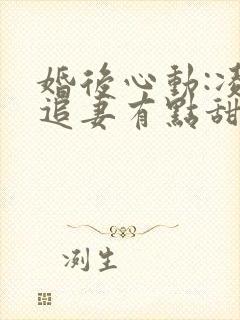 婚後心動:凌
追妻有點甜
冽生